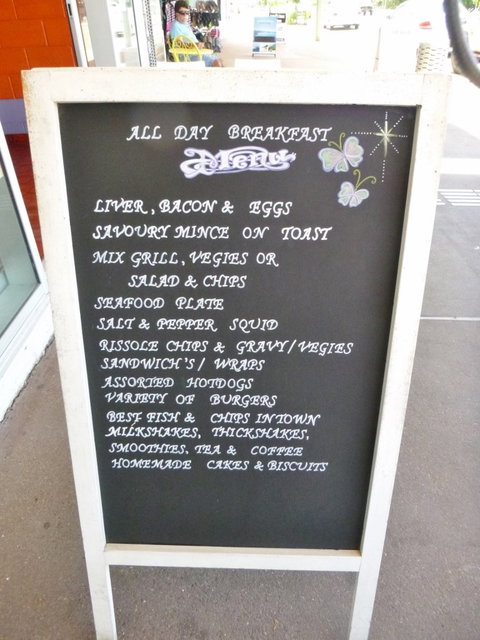 ALL DAY BREAKFAST
Menu
LIVER, BACON & EGGS
SAVOURY MINCE ON TOAST
MIX GRILL, VEGIES OR
SALAD & CHIPS
SEAFOOD PLATE
SALT & PEPPER SQUID
RISSOLE CHIPS & GRAVY/VEGIES
SANDWICH'S/ WRAPS
ASSORTED HOTDOGS
VARIETY OF BURGERS
BEST FISH & CHIPS IN TOWN
MILKSHAKES, THICKSHAKES,
SMOOTHIES, TEA & COFFEE
HOMEMADE CAKES & BISCUITS